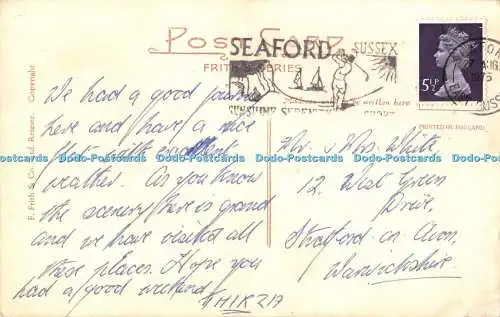 POST CARD
FRITH'S SERIES
SEAFORD
SUSSEX
5½P
1975
PRINTED IN ENGLAND
F. Frith & Co. Ltd. Reigate. Copyright
We had a good journey
here and have a nice
flat with excellent
weather. As you know
the scenery here is grand
and we have visited all
these places. Hope you
had a good weekend
Mr. & Mrs. White,
12, West Green
Drive,
Stratford-on-Avon,
Warwickshire.
Dodo-Postcards Dodo-Postcards Dodo-Postcards Dodo-Postcards Dodo-Postcards
Dodo-Postcards Dodo-Postcards Dodo-Postcards Dodo-Postcards Dodo-Postcards